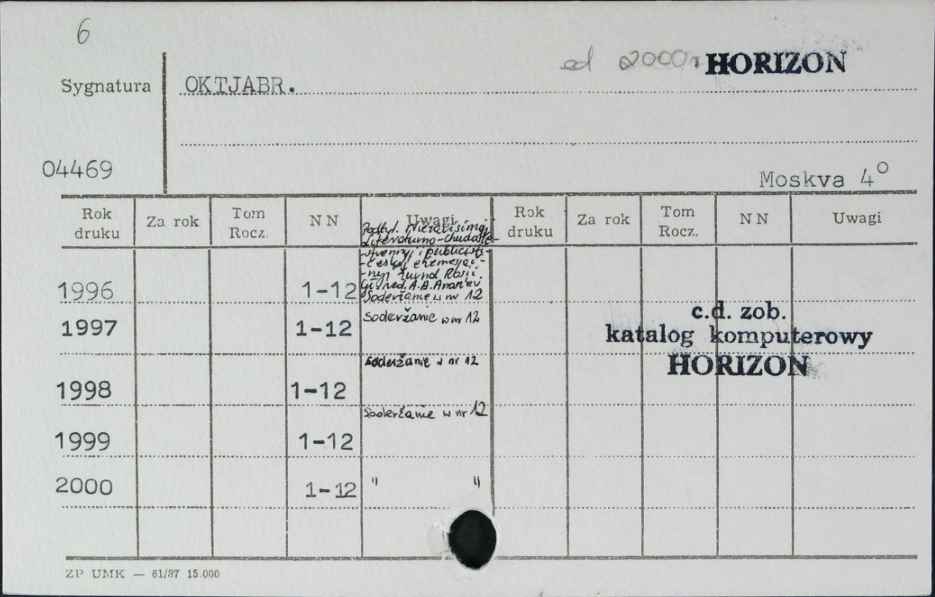 6
od 2000r. HORIZON
Sygnatura OKTJABR.
04469
Moskva 4°
Rok druku Za rok Tom Rocz. NN Uwagi Rok druku Za rok Tom Rocz. NN Uwagi
Podtyt. Niezavisimyj
Literaturno-chudože-
stvennyj i publicisti-
českij ežemesjač-
nyj žurnal Rosii.
Gł. red. A.A. Anan'ev
1996 1-12 Soderžanie w nr 12
1997 1-12 Soderžanie w nr 12
c.d. zob.
katalog komputerowy
HORIZON
1998 1-12 Soderžanie w nr 12
1999 1-12 Soderžanie w nr 12
2000 1-12 " "
ZP UMK — 61/87 15.000